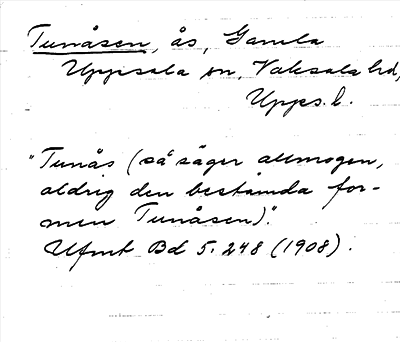 Tunåsen, ås, Gamla
Uppsala sn, Vaksala hd,
Upps. l.
"Tunås (så säger allmogen,
aldrig den bestämda for-
men Tunåsen)".
Ufmt Bd 5. 248 (1908).